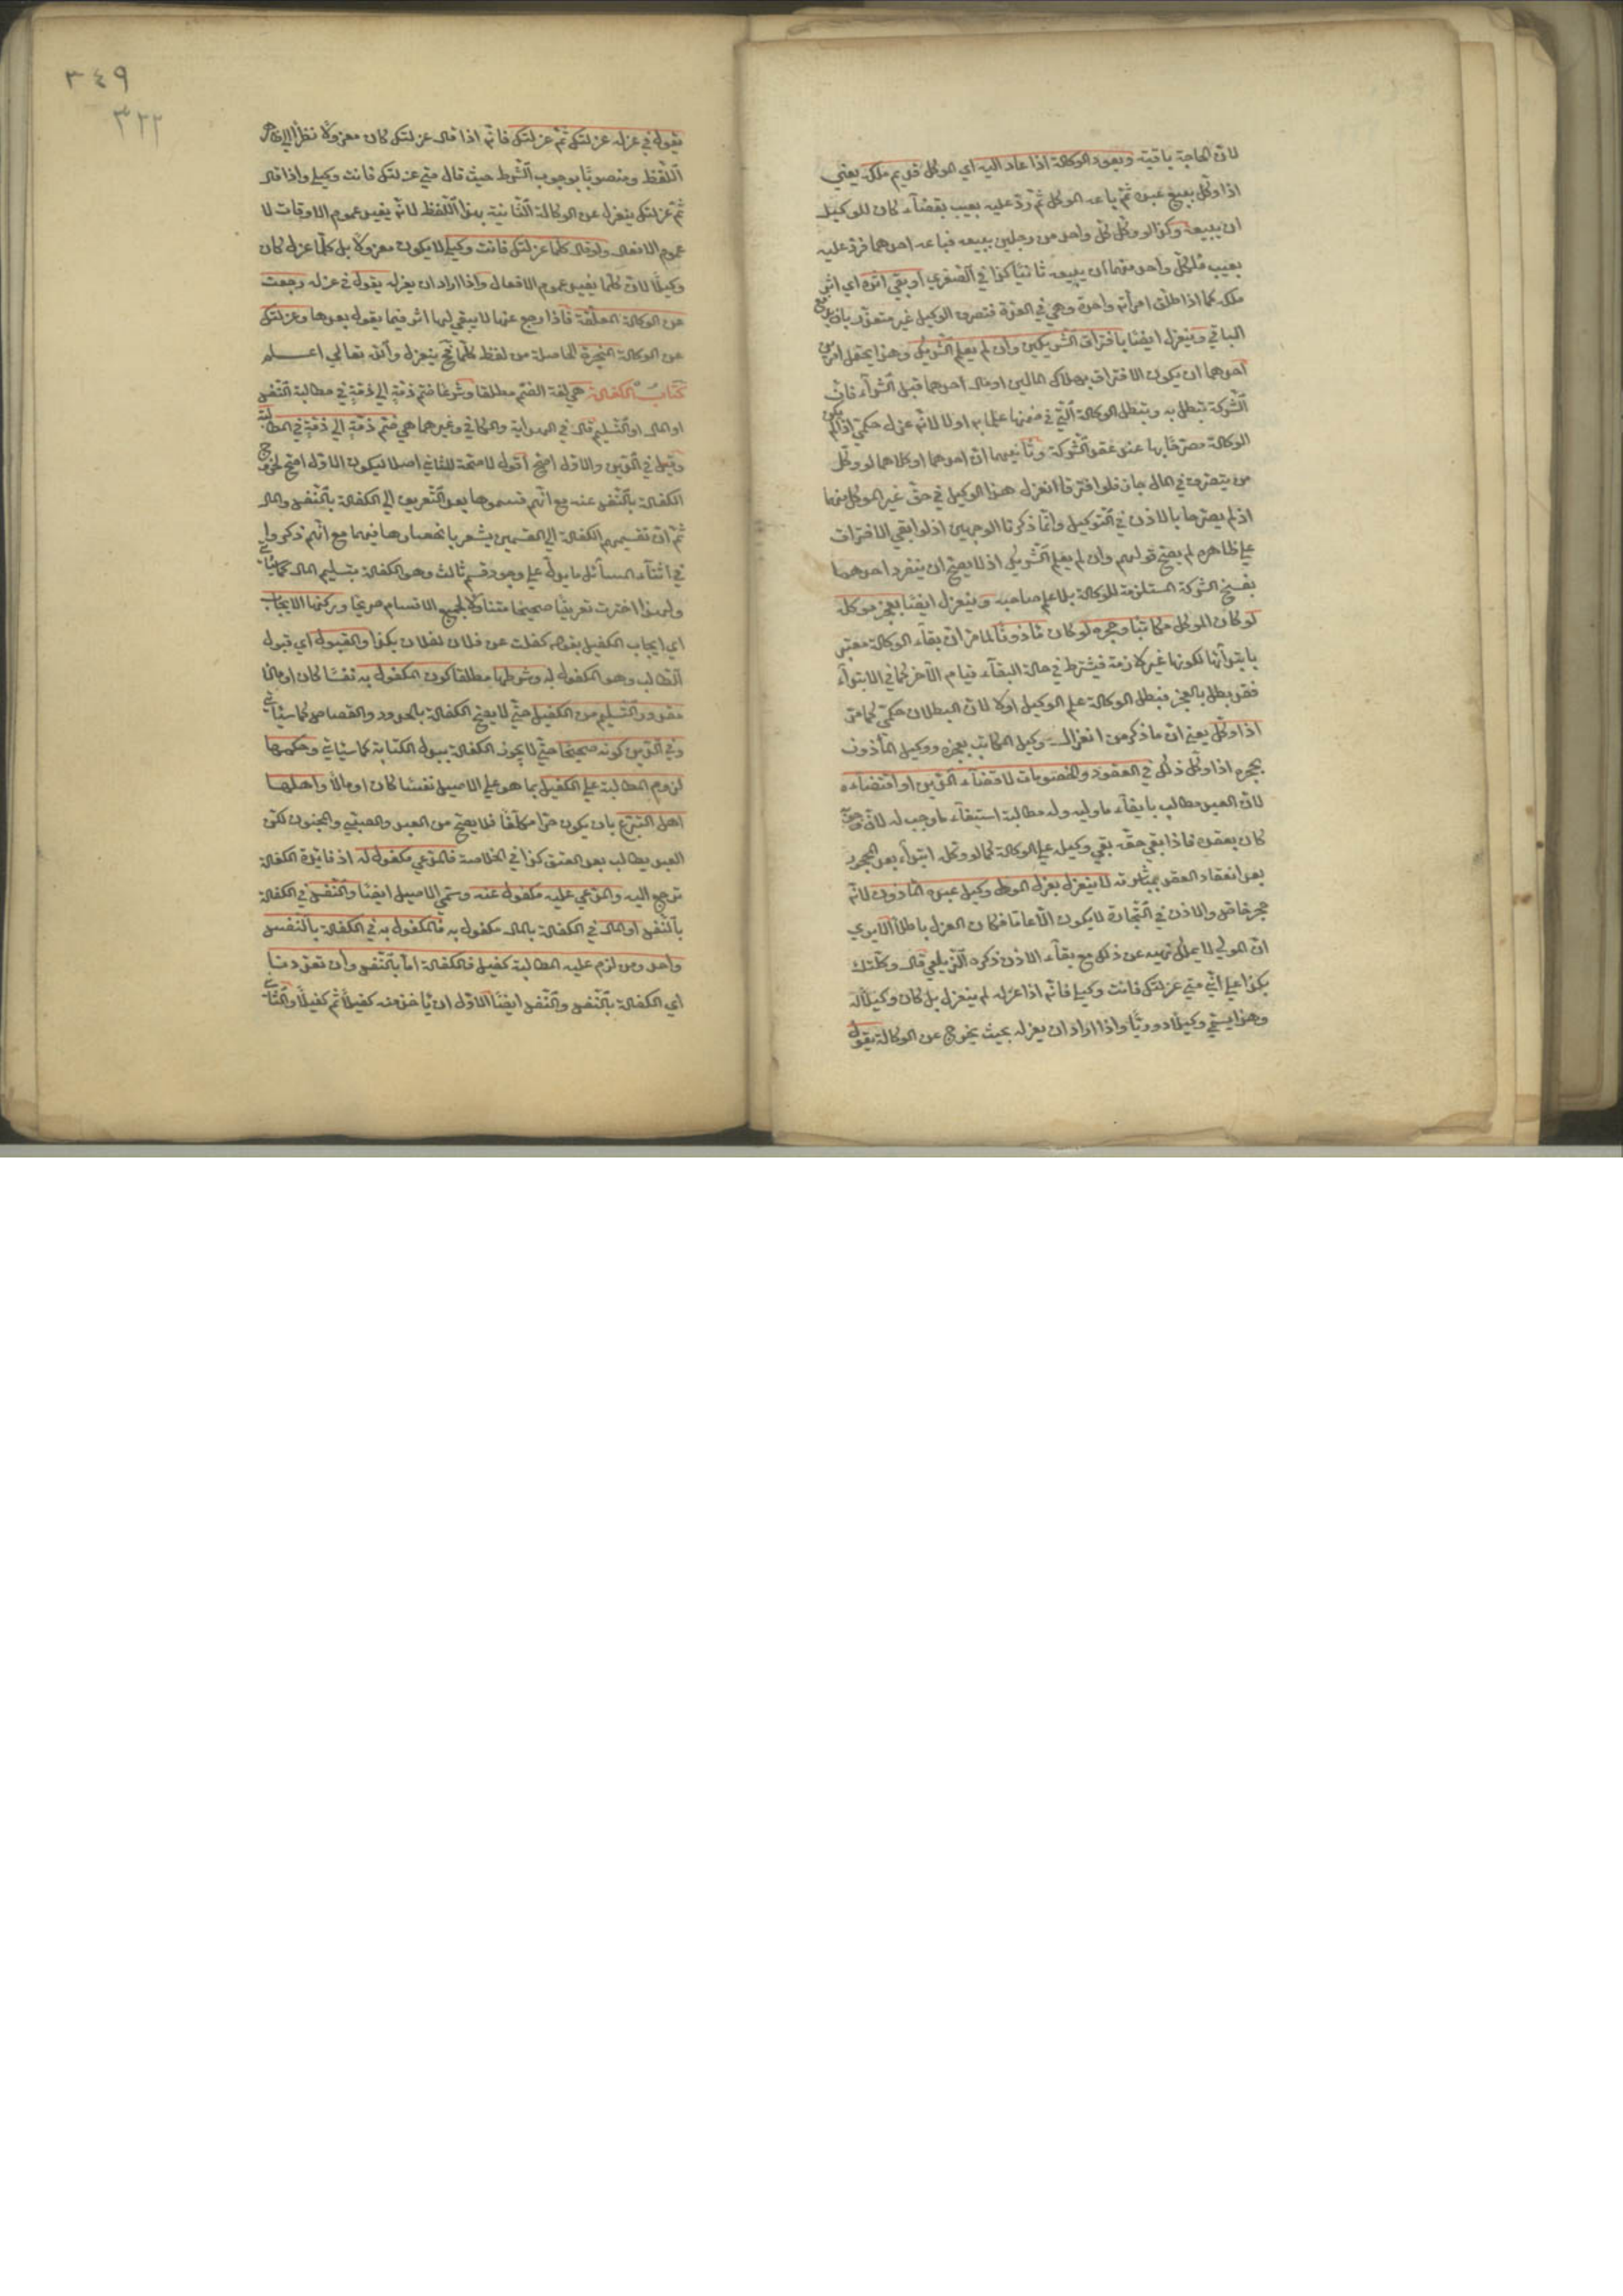 لان الحاجة باقية ويعود الوكالة اذا عاد اليه اي الموكل قديم ملكه يعني
اذا وكل ببيع عبده ثم باعه الموكل ثم رد عليه بعيب بقضاء كان للوكيل
ان يبيعه وكذا لو وكل كل واحد من رجلين ببيعه فباعه احدهما فرد عليه
بعيب فلكل واحد منهما ان يبيعه ثانيا كذا في الصغري او بقي اثره اي اثر
ملكه كما اذا طلق امرأته واحدة وهي في العدة فتصرف الوكيل غير متعذر بان يوقع
الباقي وينعزل ايضا بافتراق الشريكين وان لم يعلم الشريك وهذا يحتمل امرين
احدهما ان يكون الافتراق بهلاك المالين او مال احدهما قبل الشراء فان
الشركة تبطل به ويتبطل الوكالة التي في ضمنها علما به اولا لانه عزل حكمي اذا لم يكن
الوكالة مصرحا بها عند عقد الشركة وثانيهما ان احدهما او كلاهما لو وكل
من يتصرف في المال جاز فلو افترقا انعزل هذا الوكيل في حق غير الموكل منهما
اذ لم يصرحا بالاذن في التوكيل وانما ذكرنا الوجهين اذ لو ابقي الافتراق
علي ظاهره لم يصح قولهم وان لم يعلم الشريك اذ لا يصح ان ينفرد احدهما
بفسخ الشركة المستلزمة للوكالة بلا علم صاحبه وينعزل ايضا بعجز موكله
لو كان الموكل مكاتبا وحجره لو كان مأذونا لما مر ان بقاء الوكالة معتبر
بابتدائها لكونها غير لازمة فيشترط في حالة البقاء قيام الامر كما في الابتداء
فقد بطل بالعجز فتبطل الوكالة علم الوكيل اولا لان البطلان حكمي كما مر
اذا وكل يعني ان ما ذكر من انعزال وكيل المكاتب بعجزه ووكيل المأذون
بحجره اذا وكل ذلك في العقود والخصومات لا قضاء الدين او اقتضاءه
لان العبد مطالب بايفاء ما وليه وله مطالبة استيفاء ما وجب له لان وجوبه
كان بعقده فاذا بقي حقه بقي وكيله علي الوكالة كما لو وكله ابتداء بعد الحجر
بعد انعقاد العقد بمباشرته لا ينعزل بعزل المولي وكيل عبده المأذون لانه
حجر خاص والاذن في التجارة لا يكون الا عاما فكان العزل باطلا الا يري
ان المولي لا يملك نهيه عن ذلك مع بقاء الاذن ذكره الزيلعي قال وكلتك
بكذا علي اني متي عزلتك فانت وكيلي فانه اذا عزله لم ينعزل بل كان وكيلا له
وهذا يسمي وكيلا دوريا واذا اراد ان يعزله بحيث يخرج عن الوكالة يقول
٣٤٩
٣٢٢
يقول في عزله عزلتك ثم عزلتك فانه اذا قال عزلتك كان معزولا نظرا الي ظاهر
اللفظ ومنصوبا بوجوب الشرط حيث قال متي عزلتك فانت وكيلي واذا قال
ثم عزلتك ينعزل عن الوكالة الثانية بهذا اللفظ لانه يفيد عموم الاوقات لا
عموم الافعال ولو قال كلما عزلتك فانت وكيلي لا يكون معزولا بل كلما عزل كان
وكيلا لان كلما يفيد عموم الافعال واذا اراد ان يعزله يقول في عزله رجعت
عن الوكالة المعلقة فاذا رجع عنها لا يبقي لها اثر فيما يقول بعدها وعزلتك
عن الوكالة المنجزة الحاصلة من لفظ كلما فح ينعزل والله تعالي اعلم
كتاب الكفالة هي لغة الضم مطلقا وشرعا ضم ذمة الي ذمة في مطالبة النفس
او المال او التسليم قال في الهداية والكافي وغيرهما هي ضم ذمة الي ذمة في المطالبة
وقيل في الدين والاول اصح اقول لا صحة للثاني اصلا ليكون الاول اصح لخروج
الكفالة بالنفس عنه مع انهم قسموها بعد التعريف الي الكفالة بالنفس والمال
ثم ان تقسيمهم الكفالة الي القسمين يشعر بانحصارها فيهما مع انهم ذكروا
في اثناء المسائل ما يدل علي وجود قسم ثالث وهو الكفالة بتسليم المال كما سيأتي
ولهذا اخترت تعريفا صحيحا متناولا لجميع الاقسام صريحا وركنها الايجاب
اي ايجاب الكفيل بقوله كفلت عن فلان لفلان بكذا والقبول اي قبول
الطالب وهو المكفول له وشرطها مطلقا كون المكفول به نفسا كان او مالا
مقدور التسليم من الكفيل حتي لا يصح الكفالة بالحدود والقصاص كما سيأتي
وفي الدين كونه صحيحا حتي لا يجوز الكفالة ببدل الكتابة كما سيأتي وحكمها
لزوم المطالبة علي الكفيل بما هو علي الاصيل نفسا كان او مالا واهلها
اهل التبرع بان يكون حرا مكلفا فلا يصح من العبد والصبي والمجنون لكن
العبد يطالب بعد العتق كذا في الخلاصة فالمدعي مكفول له اذ فائدة الكفالة
ترجع اليه والمدعي عليه مكفول عنه وسمي الاصيل ايضا والنفس في الكفالة
بالنفس او المال في الكفالة بالمال مكفول به فالمكفول به في الكفالة بالنفس
واحد ومن لزم عليه المطالبة كفيل فالكفالة اما بالنفس وان تعددتا
اي الكفالة بالنفس والنفس ايضا الاول ان يأخذ منه كفيلا ثم كفيلا والثاني